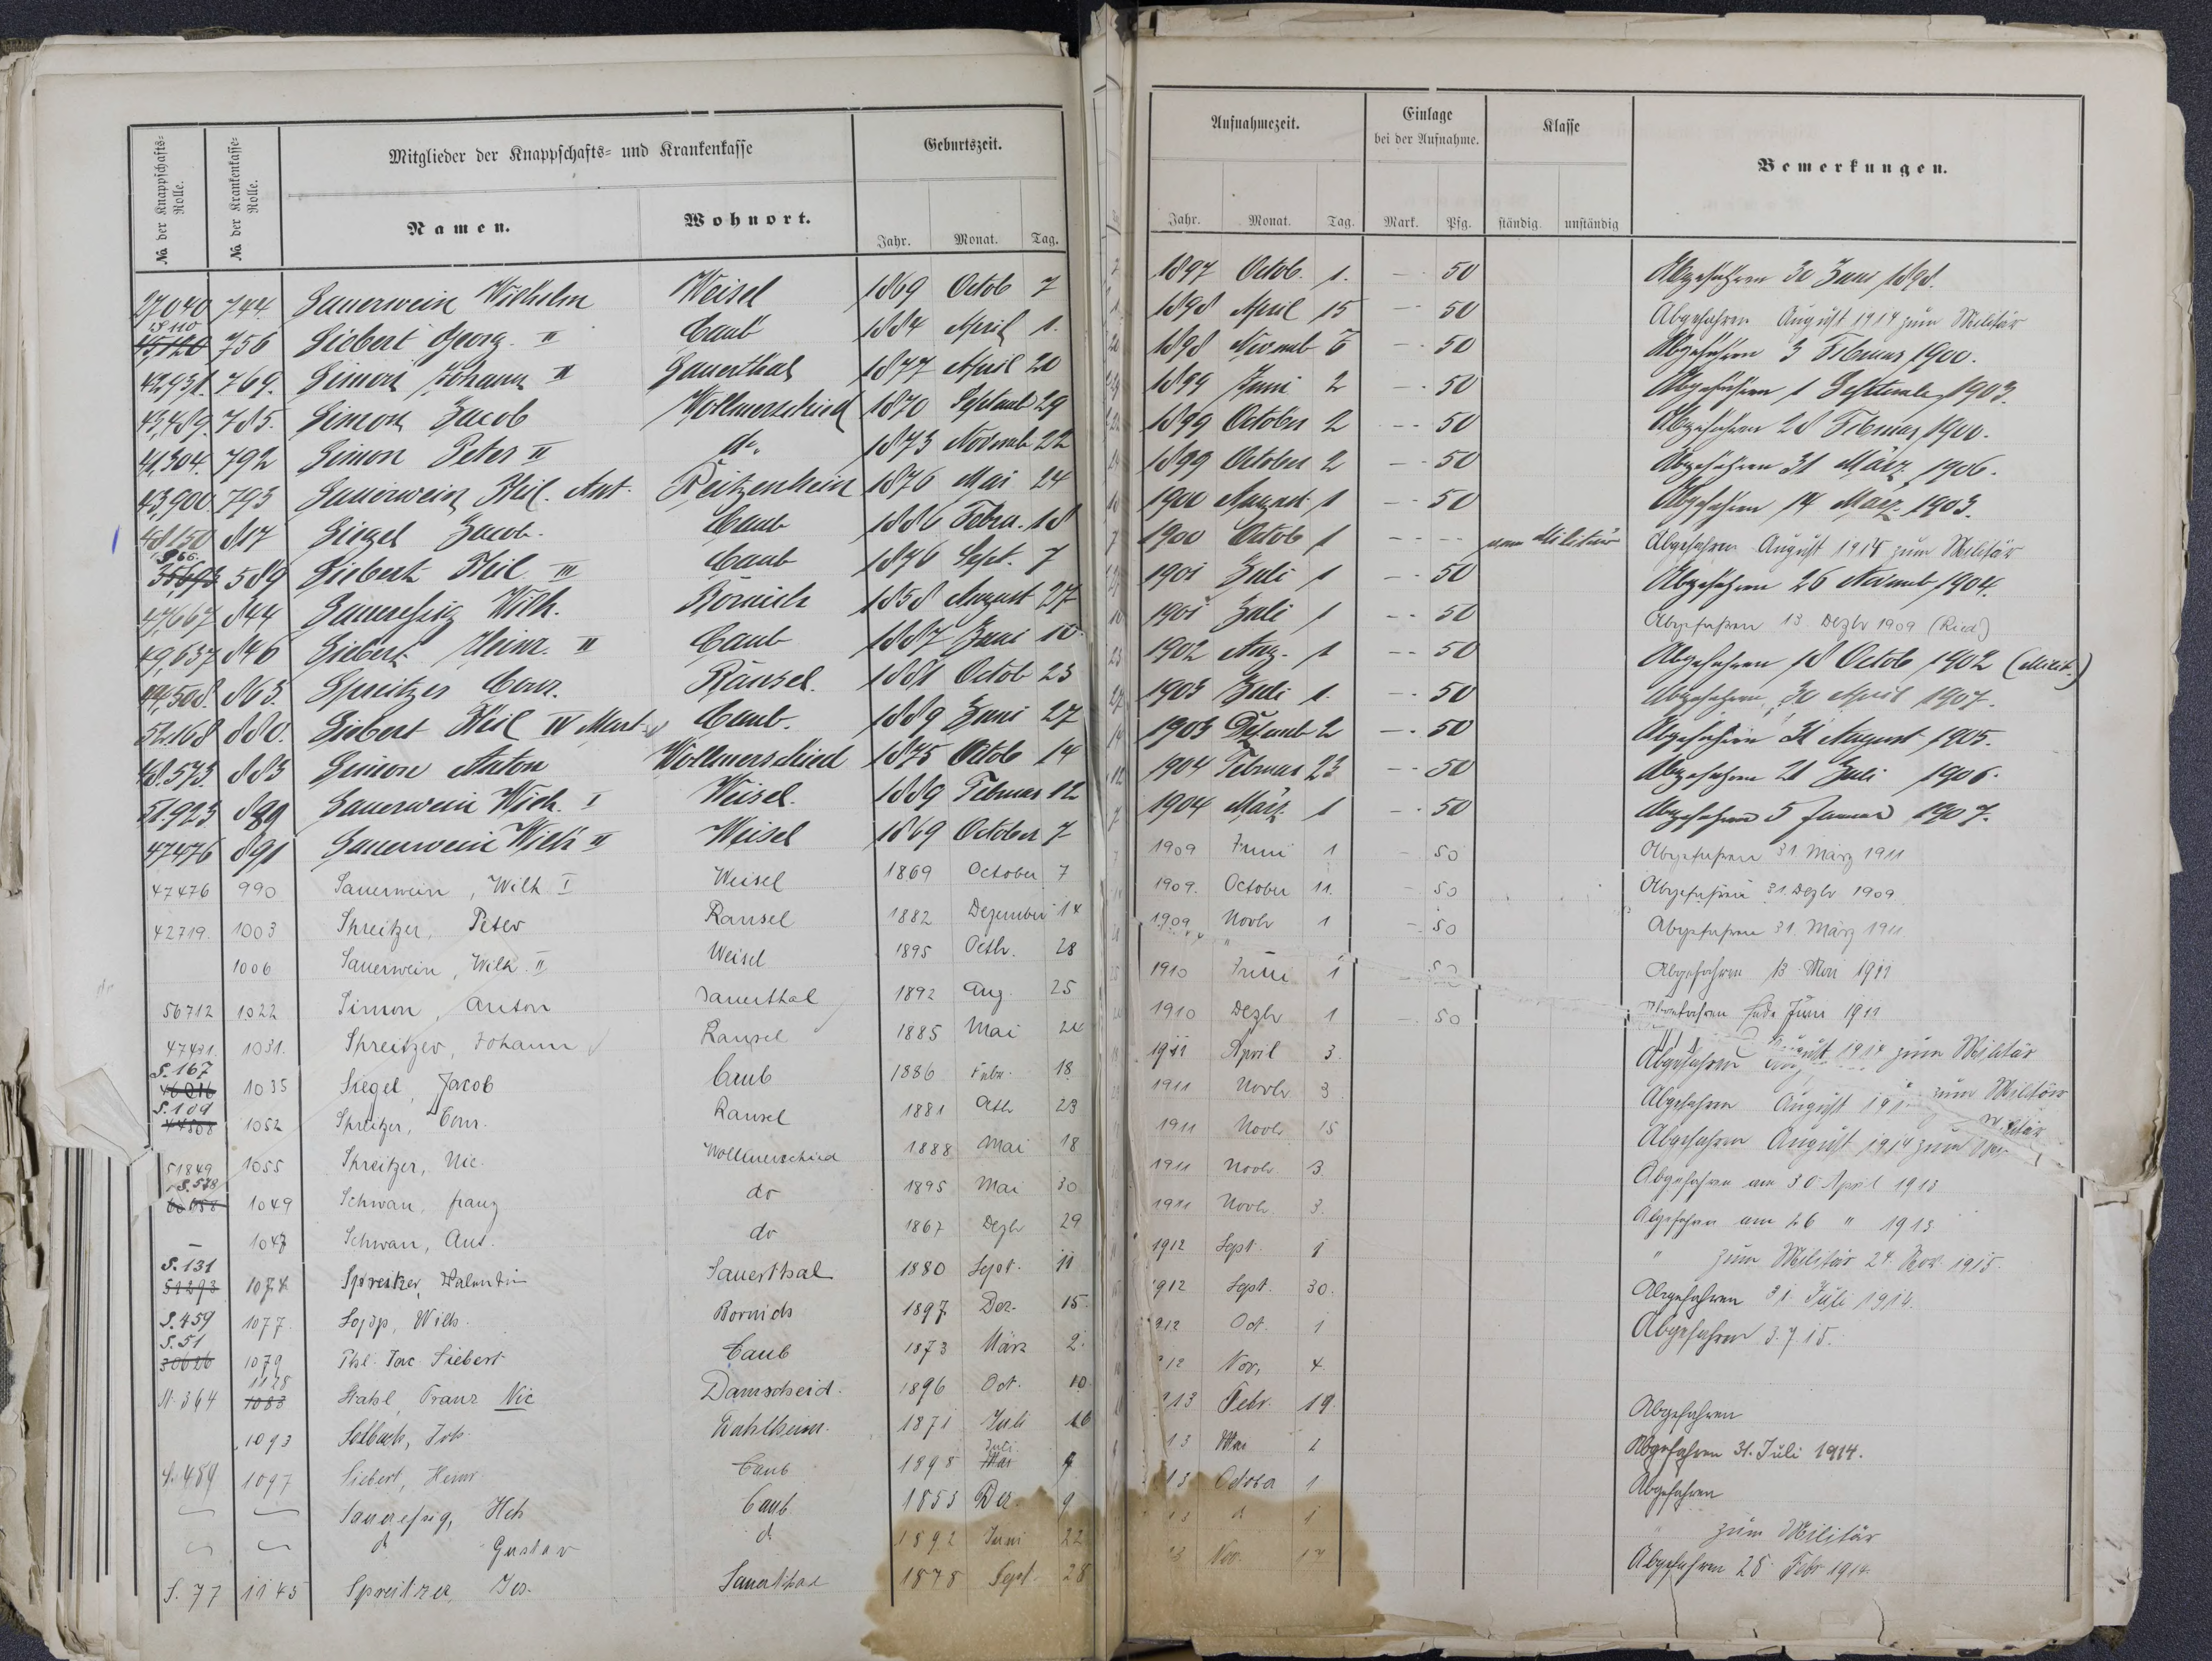 Mitglieder der Knappschafts- und Krankenkasse
Geburtszeit.
Aufnahmezeit.
Einlage bei der Aufnahme.
Klasse
Bemerkungen.
No. der Knappschafts-Rolle.
No. der Krankenkasse-Rolle.
Namen.
Wohnort.
Jahr. Monat. Tag.
Jahr. Monat. Tag.
Mark. Pfg.
ständig unständig
27040 744. Sauerwein Wilhelm Weisel 1869 Octob 7 1897 Octob. 1. — 50 Abgefahren 30 Juni 1898.
45120 756 Siebert Georg. II Caub 1884 April 1. 1898 April 15 — 50 Abgefahren August 1914 zum Militär
42931. 769. Simon Johann II Sauerthal 1877 April 20 1898 50 Abgefahren 3 Februar 1900.
43,489. 785. Simon Jacob Wollmerschied 1870 Septemb 29 1899 Juni 2 — 50 Abgefahren 1 September 1903.
41,304. 792 Simon Peter II do. 1873 Novemb 22 1899 October 2 — 50 Abgefahren 28 Februar 1900.
43,900. 793 Sauerwein Phil. Ant. Reitzenhein 1876 Mai 24 1899 October 2 — 50 Abgefahren 31 März 1906.
48150 817 Siegel Jacob. Caub 1886 Febru. 18 1900 August 1 — 50 Abgefahren 14 März 1903.
589 Siebert Phil. III Caub 1876 Sept. 7 1900 Octob 1 vom Militär Abgefahren August 1914 zum Militär
47667 844 Sauressig Wilh. Bornich 1858 August 27 1901 Juli 1 — 50 Abgefahren 26 Novemb 1904.
49,637 846 Siebert Heinr. II Caub 1887 Juni 10 1901 Juli 1 — 50 Abgefahren 13. Dezbr 1909 (Ried)
44,508. 863. Spreitzer Conr. Ransel. 1881 Octob 23 1902 Aug. 1 — 50 Abgefahren 18 Octob 1902 (Milit.)
52168 880. Siebert Phil IV Mart. Caub. 1889 Juni 27 1903 Juli 1. — 50 Abgefahren, 30 April 1907.
48.573. 883 Simon Anton Wollmerschied 1875 Octob 14 1903 Dezemb 2 — 50 Abgefahren 31 August 1905.
51.923 889 Sauerwein Wilh. I Weisel. 1889 Februar 12 1904 Februar 23 — 50 Abgefahren 21 Juli 1906.
47476 891 Sauerwein Wilh II Weisel 1869 October 7 1904 März 1 — 50 Abgefahren 5 Januar 1907.
47476 990 Sauerwein, Wilh I Weisel 1869 October 7 1909 Juni 1 — 50 Abgefahren 31 März 1911
42719. 1003 Spreitzer, Peter Ransel 1882 Dezember 14 1909. October 11. — 50 Abgefahren 31. Dezbr 1909.
1006 Sauerwein, Wilh. II Weisel 1895 Octbr. 28 1909 Novbr 1 — 50 Abgefahren 31. März 1911.
56712 1022 Simon, Anton Sauerthal 1892 Aug. 25 1910 Juni 1 — 50 Abgefahren 13 Mai 1911
47431. 1031. Spreitzer, Johann Ransel 1885 Mai 24 1910 Dezbr 1 — 50 Abgefahren Ende Juni 1911
S. 167
1035 Siegel, Jacob Caub 1886 Febr. 18 1911 April 3. Abgefahren August 1914 zum Militär
S. 109
44508 1052 Spreitzer, Conr. Ransel 1881 Octb 23 1911 Novbr 3 Abgefahren August zum Militär
51849 1055 Spreitzer, Nic. Wollmerschied 1888 Mai 18 1911 Novbr 15 Abgefahren August 1914 zum Militär
S. 538
1049 Schwan, Franz do 1895 Mai 30 1911 Novbr. 3. Abgefahren am 30. April 1913
— 1047 Schwan, Ant. do 1867 Dezbr 29 1911 Novbr. 3. Abgefahren am 26 " 1913
S. 131
51293 1074 Spreitzer, Valentin Sauerthal 1880 Sept. 11 1912 Sept. 1 " zum Militär 24. Nov. 1915.
S. 459 1077. Wilh. Bornich 1897 Dez. 15. 912 Sept. 30. Abgefahren 31. Juli 1914.
S. 51
30626 1079 Phil. Jac. Siebert Caub 1873 März 2. 912 Oct. 1 Abgefahren 3.7.15.
1128
N. 364 1083 Stahl, Franz Nic Damscheid. 1896 Oct. 10 12 Nov, 4.
1093 Selbach, Joh. Dahlheim. 1871 Juli 16 13 Febr. 19. Abgefahren
S. 489 1097 Siebert, Heinr Caub 1898 Juli Mai 9 13 Mai 2 Abgefahren 31. Juli 1914.
Sauressig, Hch Caub 1853 Dez. 9 13 1 Abgefahren
d Gustav d. 1892 Juni 22 13 d 1 " zum Militär
S. 77 1145 Spreitzer, Jos. Sauerthal 1878 Sept. 28 Nov. 17 Abgefahren 28. Febr 1914.